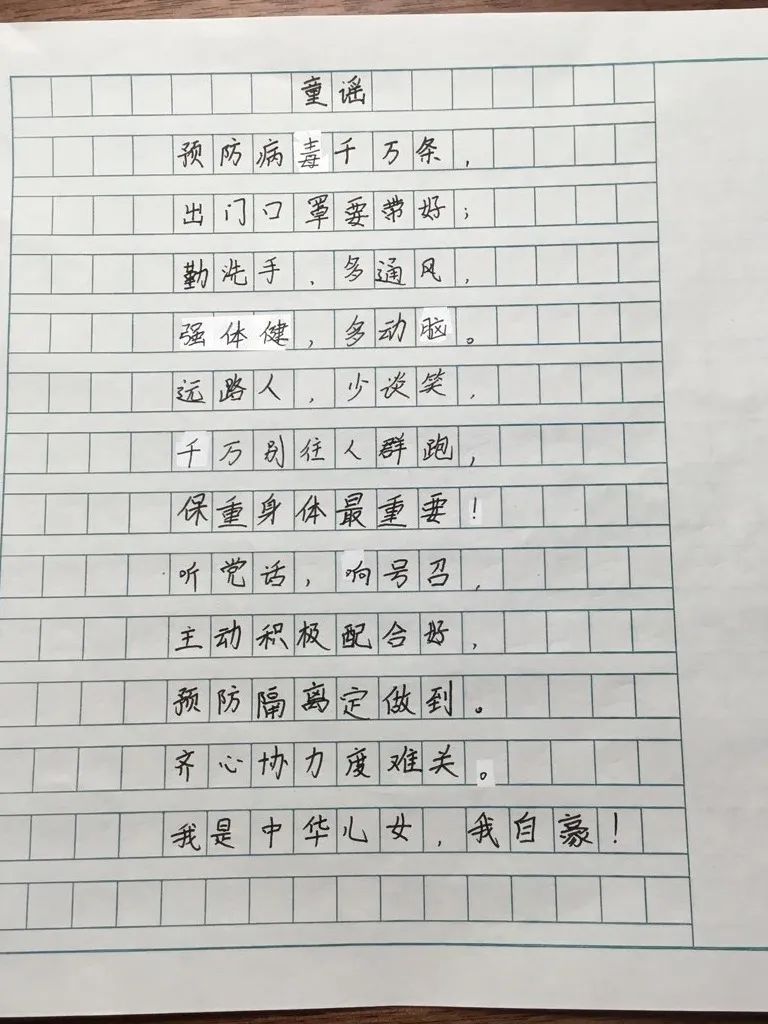 童谣
预防病毒千万条，
出门口罩要带好；
勤洗手，多通风，
强体健，多动脑。
远路人，少谈笑，
千万别往人群跑，
保重身体最重要！
听党话，响号召，
主动积极配合好，
预防隔离定做到。
齐心协力度难关。
我是中华儿女，我自豪！